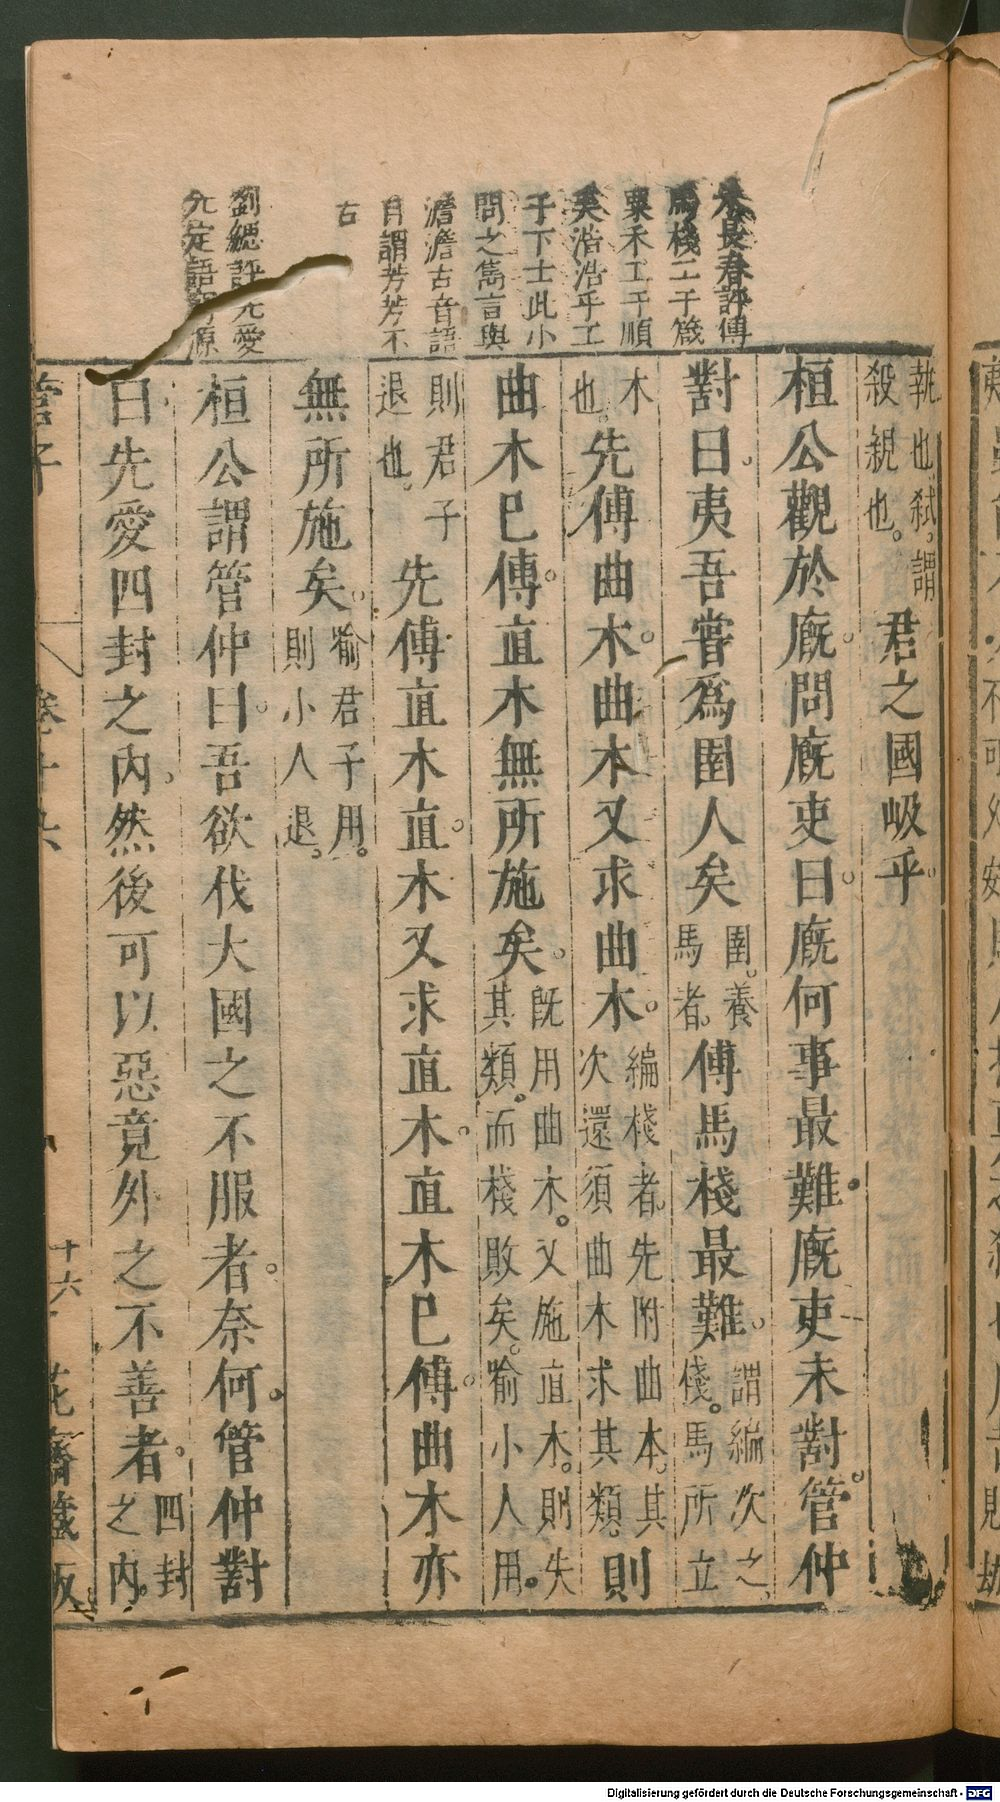 朱長春評傅
馬棧工于箴
粟禾工于順
矣浩浩乎工
于下士此小
問之雋言與
澹澹古音語
自謂芳芳不
古
劉績評先愛
九定語
源
執也弑謂
殺親也。
君之國岋乎。
桓公觀於廐。問廐吏曰。廐何事最難。廐吏未對。管仲
對曰。夷吾嘗爲圉人矣
圉。養
馬者。
傅馬棧最難。
謂編次之。
棧。馬所立
木
也。
先傅曲木。曲木又求曲木。
編棧者。先附曲本。其
次還須曲木求其類。
則
曲木巳傅。直木無所施矣。
旣用曲木。又施直木。則失
其類。而棧敗矣。喻小人用。
則君子
退也。
先傅直木。直木又求直木。直木巳傅。曲木亦
無所施矣。
喻君子用。
則小人退。
桓公謂管仲曰。吾欲伐大國之不服者。奈何。管仲對
曰先愛四封之內。然後可以惡竟外之不善者。
四封
之內。
管子
卷十六
十六
花齋藏板
Digitalisierung gefördert durch die Deutsche Forschungsgemeinschaft - DFG